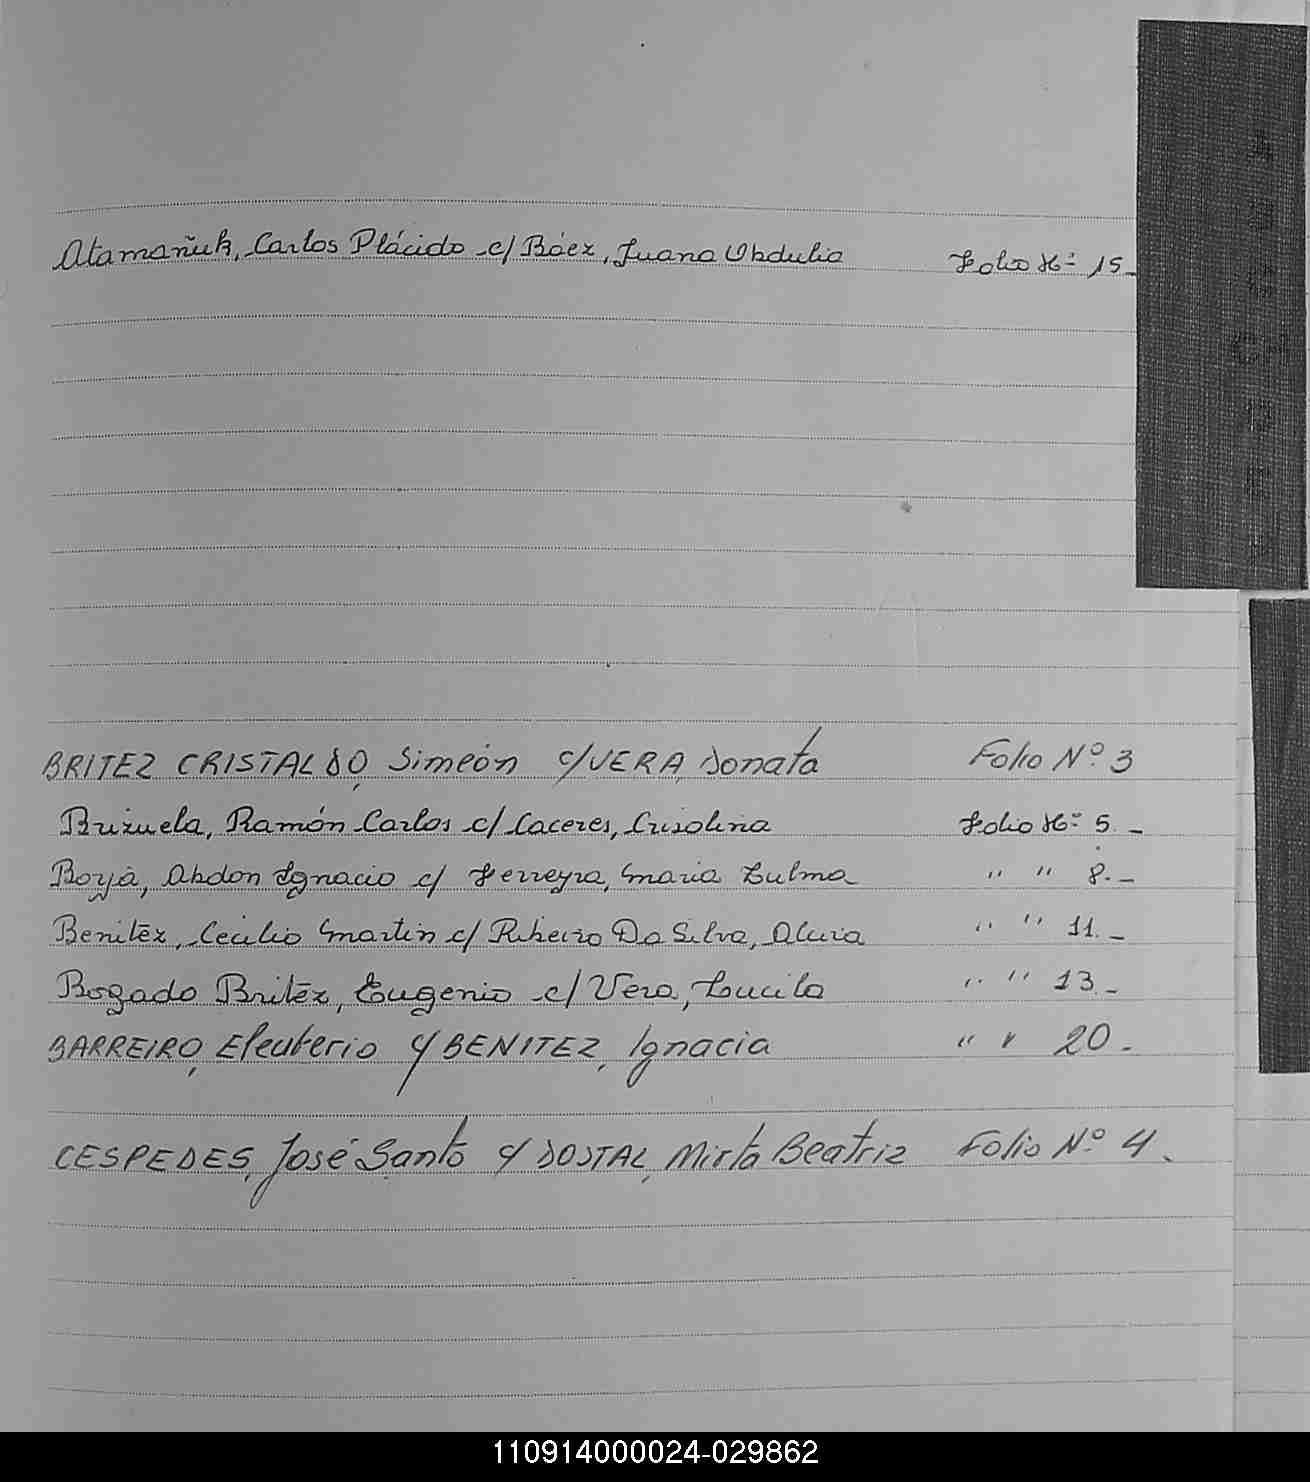 Atamañuk, Carlos Plácido c/ Báez, Juana Obdulia Folio Nº 15_
BRITEZ CRISTALDO, Simeón c/ VERA, Donata Folio Nº 3
Brizuela, Ramón Carlos c/ Caceres, Crisolina Folio Nº 5._
Boyá, Abdon Ignacio c/ Ferreyra, Maria Zulma " " 8._
Benitéz, Cecilio Martin c/ Ribeiro Da Silva, " " 11._
Bogado Britéz, Eugenio c/ Vera, Lucila " " 13._
BARREIRO, Eleuterio c/ BENITEZ, Ignacia " " 20_
CESPEDES, José Santo c/ DOSTAL, Mirta Beatriz Folio Nº 4.
110914000024-029862